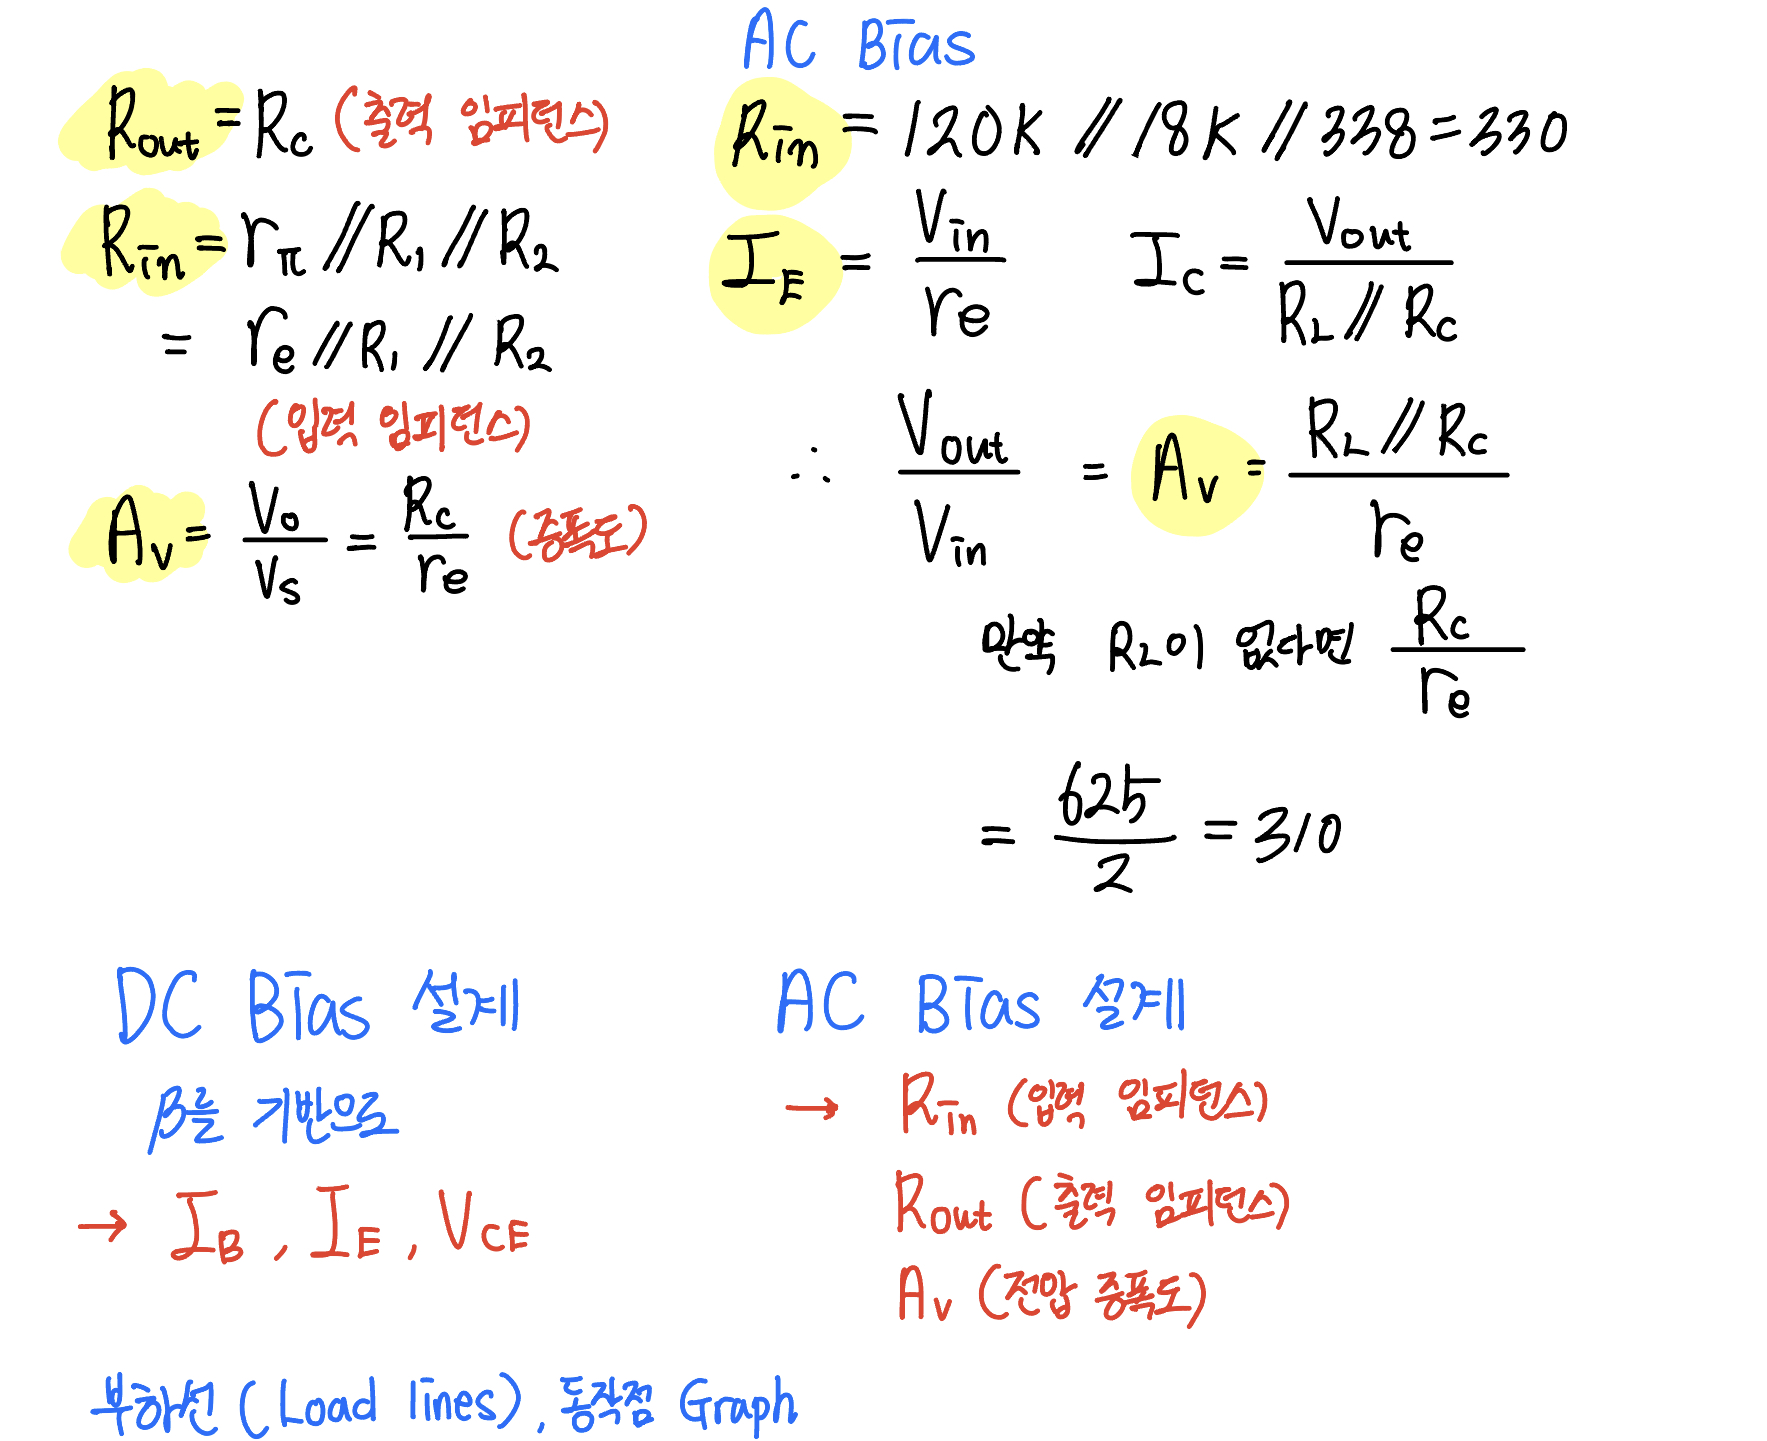 R_out = R_C (출력 임피던스)
R_in = r_π // R_1 // R_2
= r_e // R_1 // R_2
(입력 임피던스)
A_v = V_o / V_s = R_C / r_e (증폭도)
AC Bias
R_in = 120K // 18K // 338 = 330
I_E = V_in / r_e I_C = V_out / R_L // R_C
∴ V_out / V_in = A_v = R_L // R_C / r_e
만약 R_L이 없다면 R_C / r_e
= 625 / 2 = 310
DC Bias 설계
β를 기반으로
→ I_B, I_E, V_CE
AC Bias 설계
→ R_in (입력 임피던스)
R_out (출력 임피던스)
A_v (전압 증폭도)
부하선(Load lines), 동작점 Graph